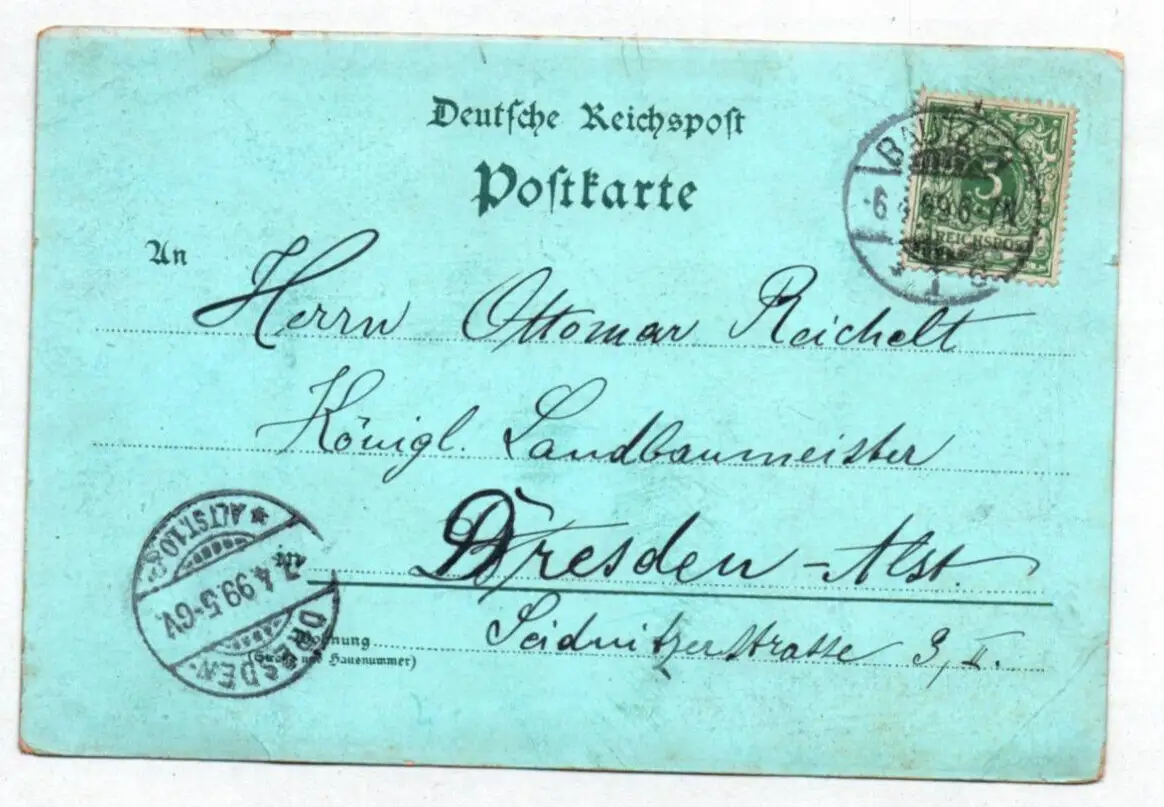 Deutsche Reichspost
Postkarte
BAUTZEN
5
-6 4 99 6-7N.
REICHSPOST
1 c
An
Herrn Ottomar Reichelt
Königl. Landbaumeister
Dresden-Alst.
Seidnitzerstrasse 3, II.
Wohnung
(Straße und Hausnummer)
* ALTST. 1.
7.4.99.5-6V.
DRESDEN.